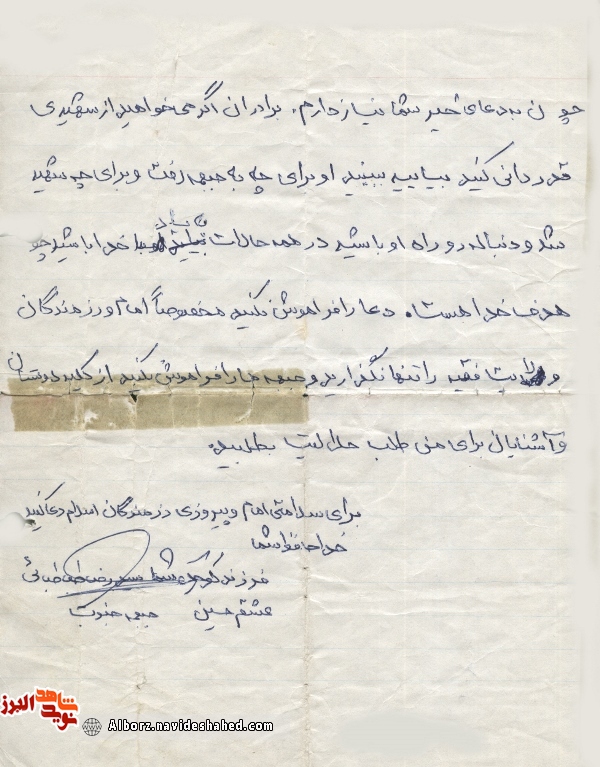 چون به دعای خیر شما نیاز دارم. برادران اگر می خواهید از شهیدی
قدردانی کنید بیایید ببینید او برای چه به جبهه رفت و برای چه شهید
شد و دنباله رو راه او باشید در همه حالات با خدا باشید چو
هدف خدا هست. دعا را فراموش نکنید مخصوصاً امام و رزمندگان
و ولایت فقیه را تنها نگذارید و جبهه ها را فراموش نکنید از کلیه دوستان
و آشنایان برای من طلب حلالیت بطلبید.
برای سلامتی امام و پیروزی رزمندگان اسلام دعا کنید
خداحافظ شما
فرزند کوچک شما سید رضا طباطبائی
عشقم حسین جبهه جنوب
نوید شاهد البرز
Alborz.navideshahed.com